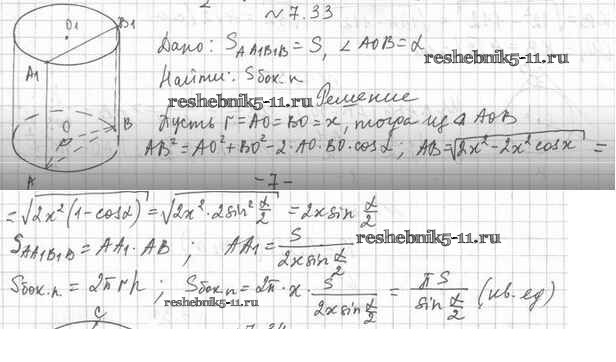 №7.33
Дано: S_AA1B1B = S, ∠AOB = α
reshebnik5-11.ru
Найти: Sбок.п
reshebnik5-11.ru
Решение
Пусть r = AO = BO = x, тогда из △ AOB
AB² = AO² + BO² - 2·AO·BO·cosα; AB = √(2x² - 2x² cosx) =
-7-
= √(2x²(1-cosα)) = √(2x²·2sin² α/2) = 2x sin α/2
S_AA1B1B = AA1·AB ; AA1 = S/(2x sin α/2)
reshebnik5-11.ru
Sбок.п = 2πrh ; Sбок.п = 2π·x· S/(2x sin α/2) = πS/(sin α/2) (кв.ед)
reshebnik5-11.ru
O1
B1
A1
O
B
A
C